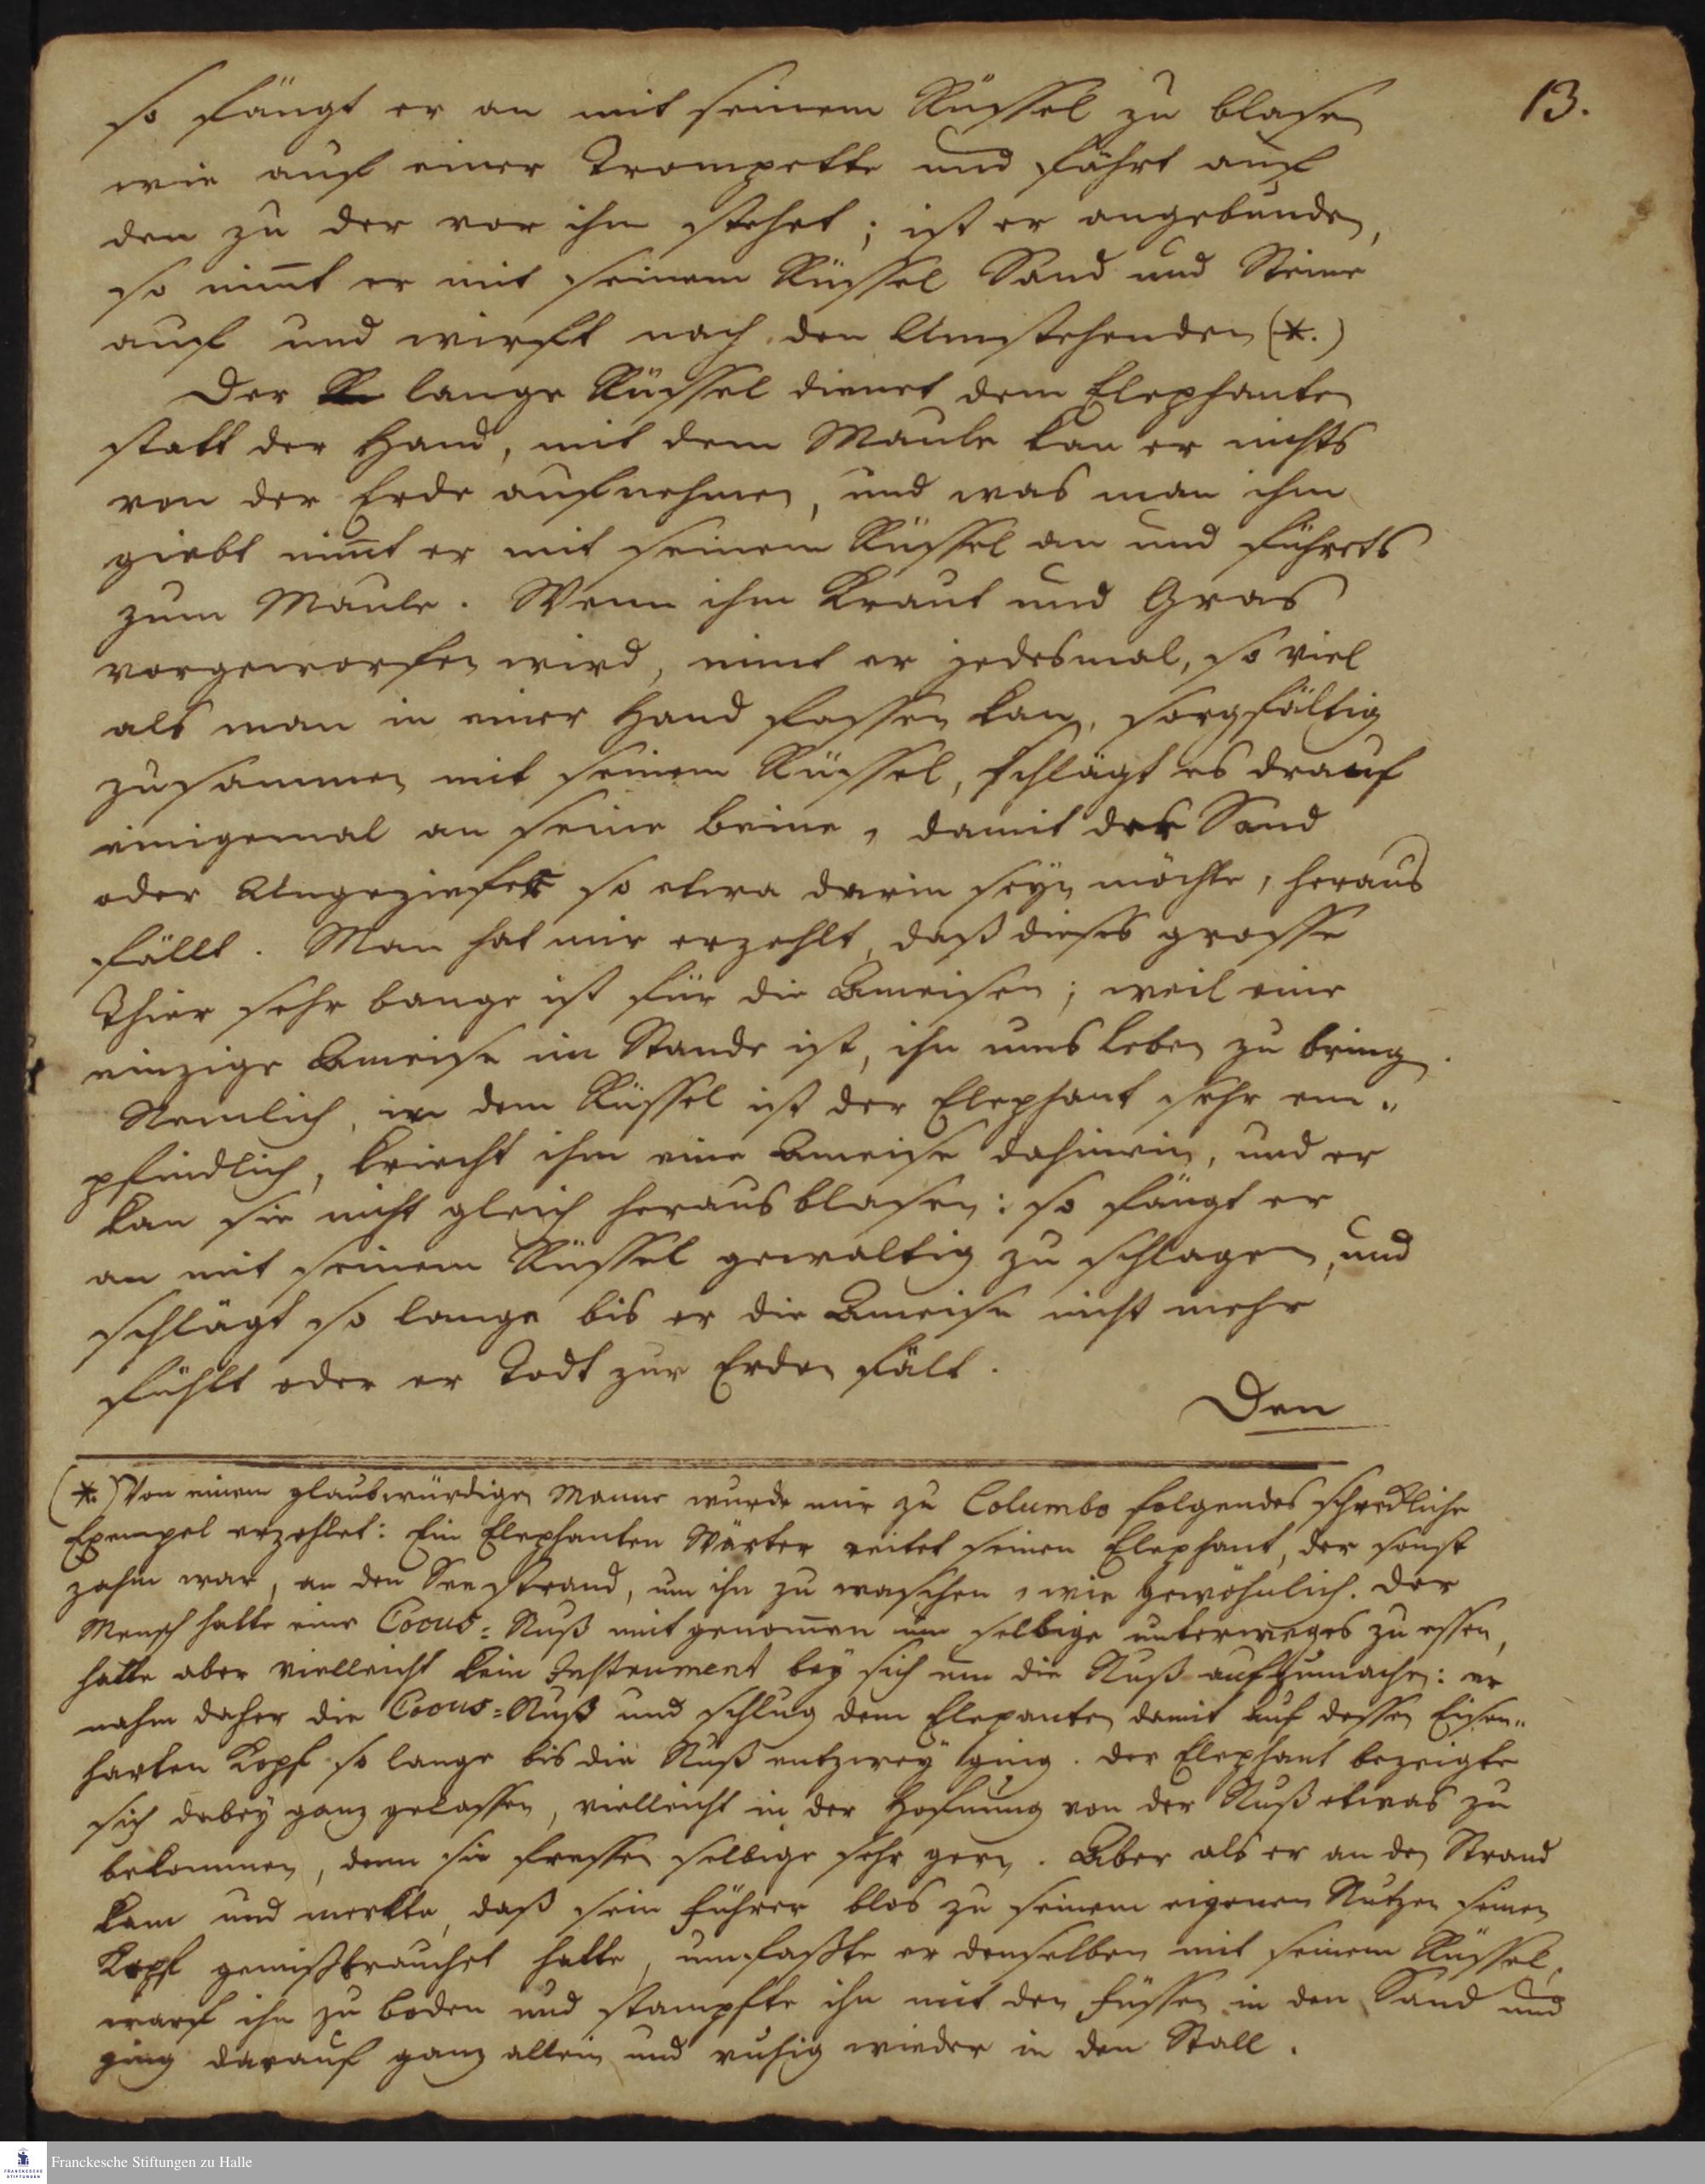 13.
so fängt er an mit seinem Rüssel zu blasen
wie auf einer Trompette und fährt auf
den zu der vor ihm stehet; ist er angebunden,
so nim̅t er mit seinem Rüssel Sand und Steine
auf und wirft nach den Umstehenden (*.)
Der lange Rüssel dienet dem Elephanten
statt der Hand, mit dem Maule kan er nichts
von der Erde aufnehmen, und was man ihm
giebt nim̅t er mit seinem Rüssel an und führets
zum Maule. Wenn ihm Kraut und Gras
vorgeworfen wird, nimt er jedesmal, so viel
als man in einer Hand fassen kan, sorgfältig
zusammen mit seinem Rüssel, schlägt es drauf
einigemal an seine beine, damit der Sand
oder Ungeziefer so etwa darin seyn möchte, heraus
fällt. Man hat mir erzehlt, daß dieses grosse
Thier sehr bange ist für die Ameisen; weil eine
einzige Ameise im Stande ist, ihn ums Leben zu bringen.
Nemlich, in dem Rüssel ist der Elephant sehr em-
pfindlich, kriecht ihm eine Ameise dahinein, und er
kan sie nicht gleich herausblasen: so fängt er
an mit seinem Rüssel gewaltig zu schlagen, und
schlägt so lange bis er die Ameise nicht mehr
fühlt oder er Todt zur Erden fält.
Den
(*.) Von einem glaubwürdigen Manne wurde mir zu Columbo folgendes schrekliche
Exempel erzehlet: Ein Elephanten Wärter reitet seinen Elephant, der sonst
zahm war, an den Seestrand, um ihn zu waschen, wie gewöhnlich. Der
Mensch hatte eine Cocus-Nuß mit genom̅en um selbige unterweges zu essen,
hatte aber vielleicht kein Instrument bey sich um die Nuß aufzumachen: er
nahm daher die Cocus-Nuß und schlug dem Elepanten damit auf dessen Eisen-
harten Kopf so lange bis die Nuß entzwey ging. Der Elephant bezeigte
sich dabey ganz gelassen, vielleicht in der Hofnung von der Nuß etwas zu
bekommen, denn sie fressen selbige sehr gern. Aber als er an den Strand
kam und merkte, daß sein Führer blos zu seinem eigenen Nutzen seinen
Kopf gemißbrauchet hatte, umfaßte er denselben mit seinem Rüssel,
warf ihn zu boden und stampfte ihn mit den Füssen in den Sand und
ging darauf ganz allein und ruhig wieder in den Stall.
FRANCKESCHE
STIFTUNGEN
Franckesche Stiftungen zu Halle